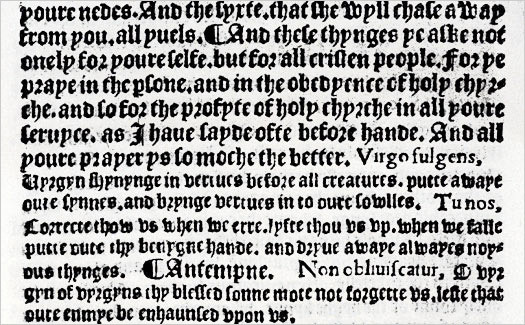 youre nedes. And the syxte. that she wyll chase away
from you. all yuels. ¶And these thynges ye aske not
onely for youre selfe. but for all cristen people. For ye
praye in the psone. and in the obedyence of holy chyr-
che. and so for the profyte of holy chyrche in all youre
seruyce. as I haue sayde ofte before hande. And all
youre prayer ys so moche the better. Virgo fulgens,
Vyrgyn shynynge in vertues before all creatures. putte awaye
oure synnes. and brynge vertues in to oure sowlles. Tu nos,
Correcte thow vs when we erre. lyfte thou vs vp. when we falle
putte oute thy benygne hande. and dryue awaye alwayes noy-
ous thynges. ¶Antempne. Non obliuiscatur, O vyr
gyn of vyrgyns thy blessed sonne mote not forgette vs. leste that
oure enmye be enhaunsed vpon vs.